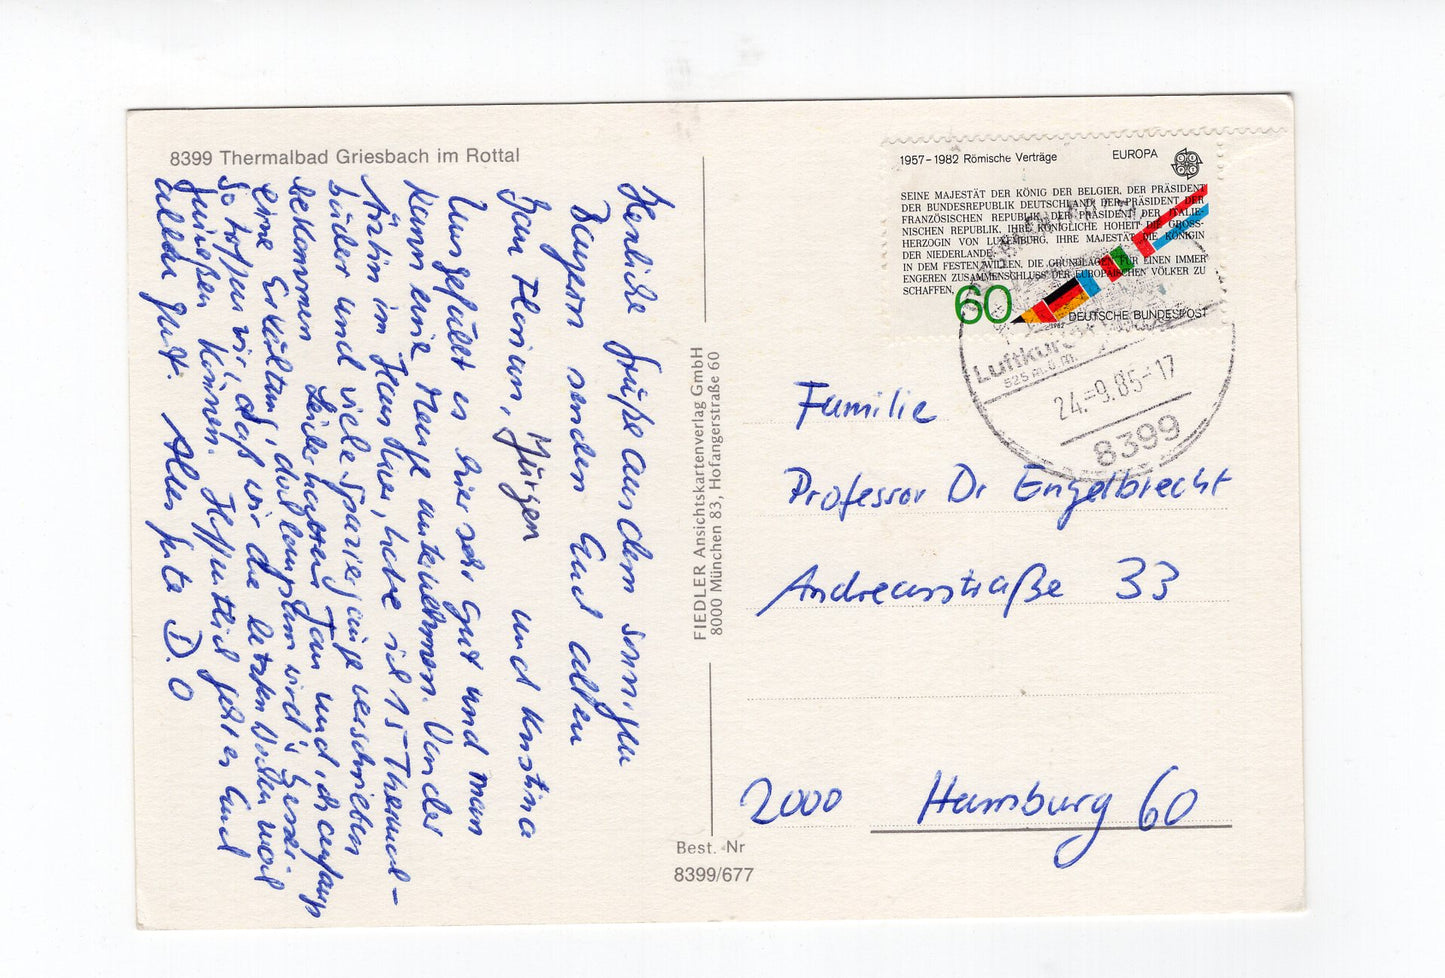 8399 Thermalbad Griesbach im Rottal
Herzliche Grüße aus dem sonnigen
Bayern senden Euch allen
Jan Florian, Jürgen und Kristina
Uns gefällt es hier sehr gut und man
kann eine Menge unternehmen. Von der
Ärztin im Haus hier, habe ich 15-Thermal-
bäder und viele Spaziergänge verschrieben
bekommen. Leider hatten Jan und ich anfangs
eine Erkältung, das langsam wird's besser.
So hoffen wir, daß wir die letzten Wochen noch
genießen können. Hoffentlich geht es Euch
allen gut. Alles Gute
FIEDLER Ansichtskartenverlag GmbH
8000 München 83, Hofangerstraße 60
Best. Nr
8399/677
1957–1982 Römische Verträge EUROPA
SEINE MAJESTÄT DER KÖNIG DER BELGIER, DER PRÄSIDENT
DER BUNDESREPUBLIK DEUTSCHLAND, DER PRÄSIDENT DER
FRANZÖSISCHEN REPUBLIK, DER PRÄSIDENT DER ITALIE-
NISCHEN REPUBLIK, IHRE KÖNIGLICHE HOHEIT DIE GROSS-
HERZOGIN VON LUXEMBURG, IHRE MAJESTÄT DIE KÖNIGIN
DER NIEDERLANDE,
IN DEM FESTEN WILLEN, DIE GRUNDLAGEN FÜR EINEN IMMER
ENGEREN ZUSAMMENSCHLUSS DER EUROPÄISCHEN VÖLKER ZU
SCHAFFEN,
60
DEUTSCHE BUNDESPOST
1982
Luftkurort
525 m.ü.M.
24.-9.85-17
8399
Familie
Professor Dr Engelbrecht
Andreasstraße 33
2000 Hamburg 60